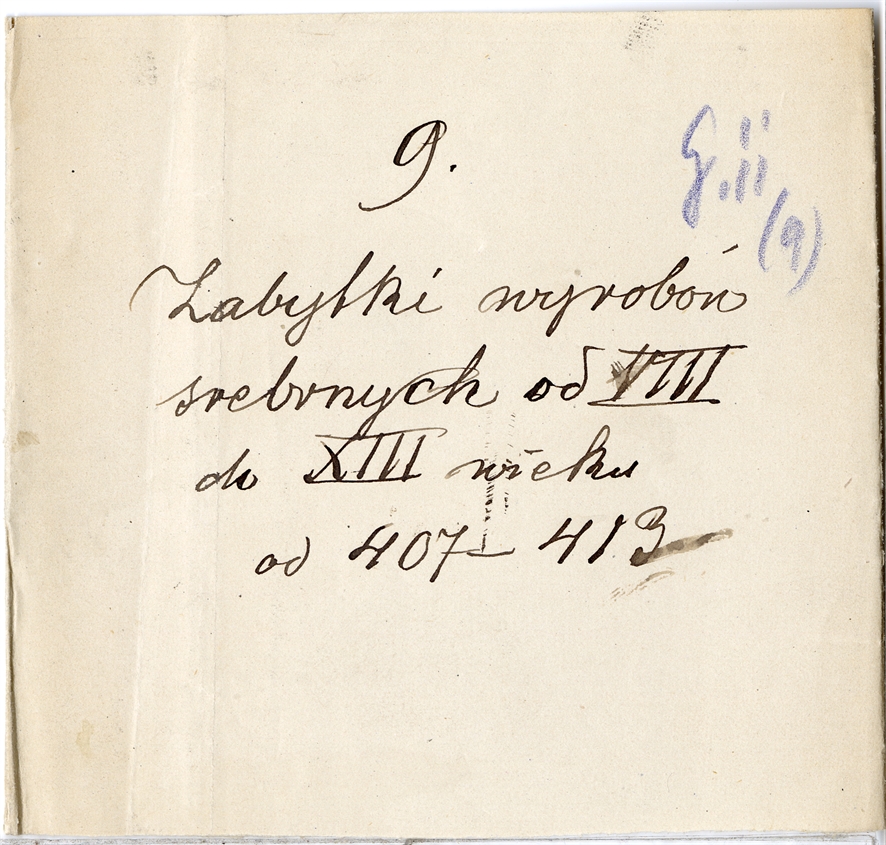 9.
G.ii
(9)
Zabytki wyrobów
srebrnych od VIII
do XIII wieku
od 407 – 413